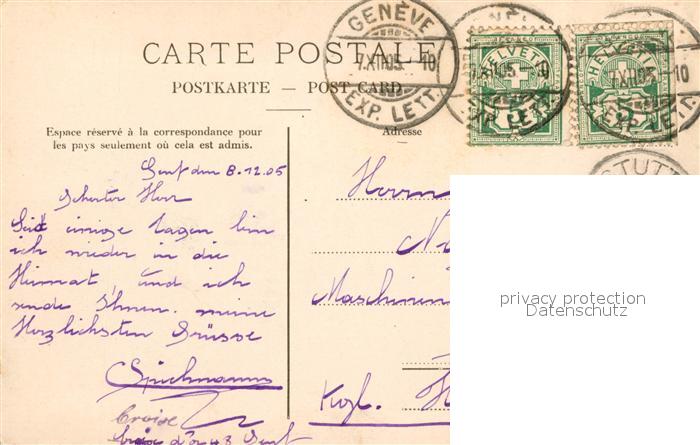 CARTE POSTALE
POSTKARTE — POST CARD
GENÈVE
7.XII.05. — 10
EXP. LETT.
HELVETIA
7.XII.05. — 10
EXP. LETT.
5
HELVETIA
7.XII.05. — 10
EXP. LETT.
5
STUTT
Espace réservé à la correspondance pour
les pays seulement où cela est admis.
Adresse
Genf den 8.12.05
Geehrter Herr
Seit einige Tagen bin
ich wieder in die
Heimat, und ich
sende Ihnen meine
Herzlichsten Grüsse
Croise
d'or 48 Genf
Herrn
Maschinen
Kgl. H
privacy protection
Datenschutz